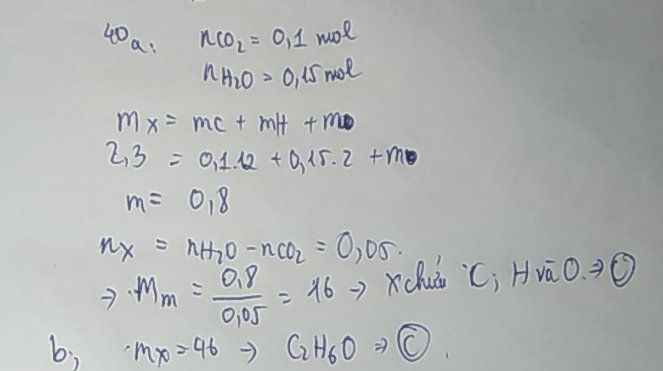 40a, nCO₂ = 0,1 mol
nH₂O = 0,15 mol
mx = mc + mH + mO
2,3 = 0,1.12 + 0,15.2 + mO
m = 0,8
nx = nH₂O - nCO₂ = 0,05.
⇒ .Mm = 0,8/0,05 = 16 → X chứa C, H và O. ⇒ C
b, .mx = 46 → C₂H₆O ⇒ C.